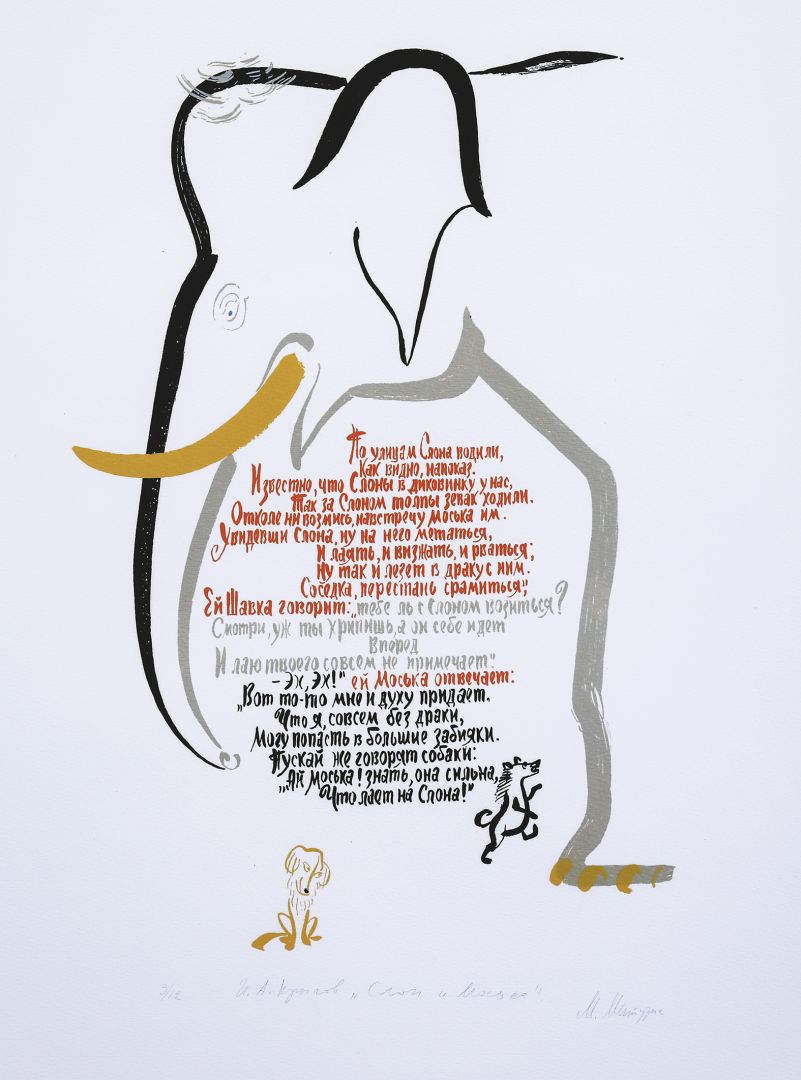 По улицам Слона водили,
Как видно, напоказ.
Известно, что Слоны в диковинку у нас,
Так за Слоном толпы зевак ходили.
Отколе ни возмись, навстречу моська им.
Увидевши Слона, ну на него метаться,
И лаять, и визжать, и рваться;
Ну так и лезет в драку с ним.
Соседка, перестань срамиться",
Ей Шавка говорит: „тебе ль с Слоном возиться?
Смотри, уж ты хрипишь, а он себе идет
Вперед
И лаю твоего совсем не примечает".
– Эх, эх!" ей Моська отвечает:
„Вот то-то мне и духу придает.
Что я, совсем без драки,
Могу попасть в большие забияки.
Пускай же говорят собаки:
„Ай Моська! знать, она сильна,
Что лает на Слона!"
3/12 И. А. Крылов „Слон и Моська". М. Митурич